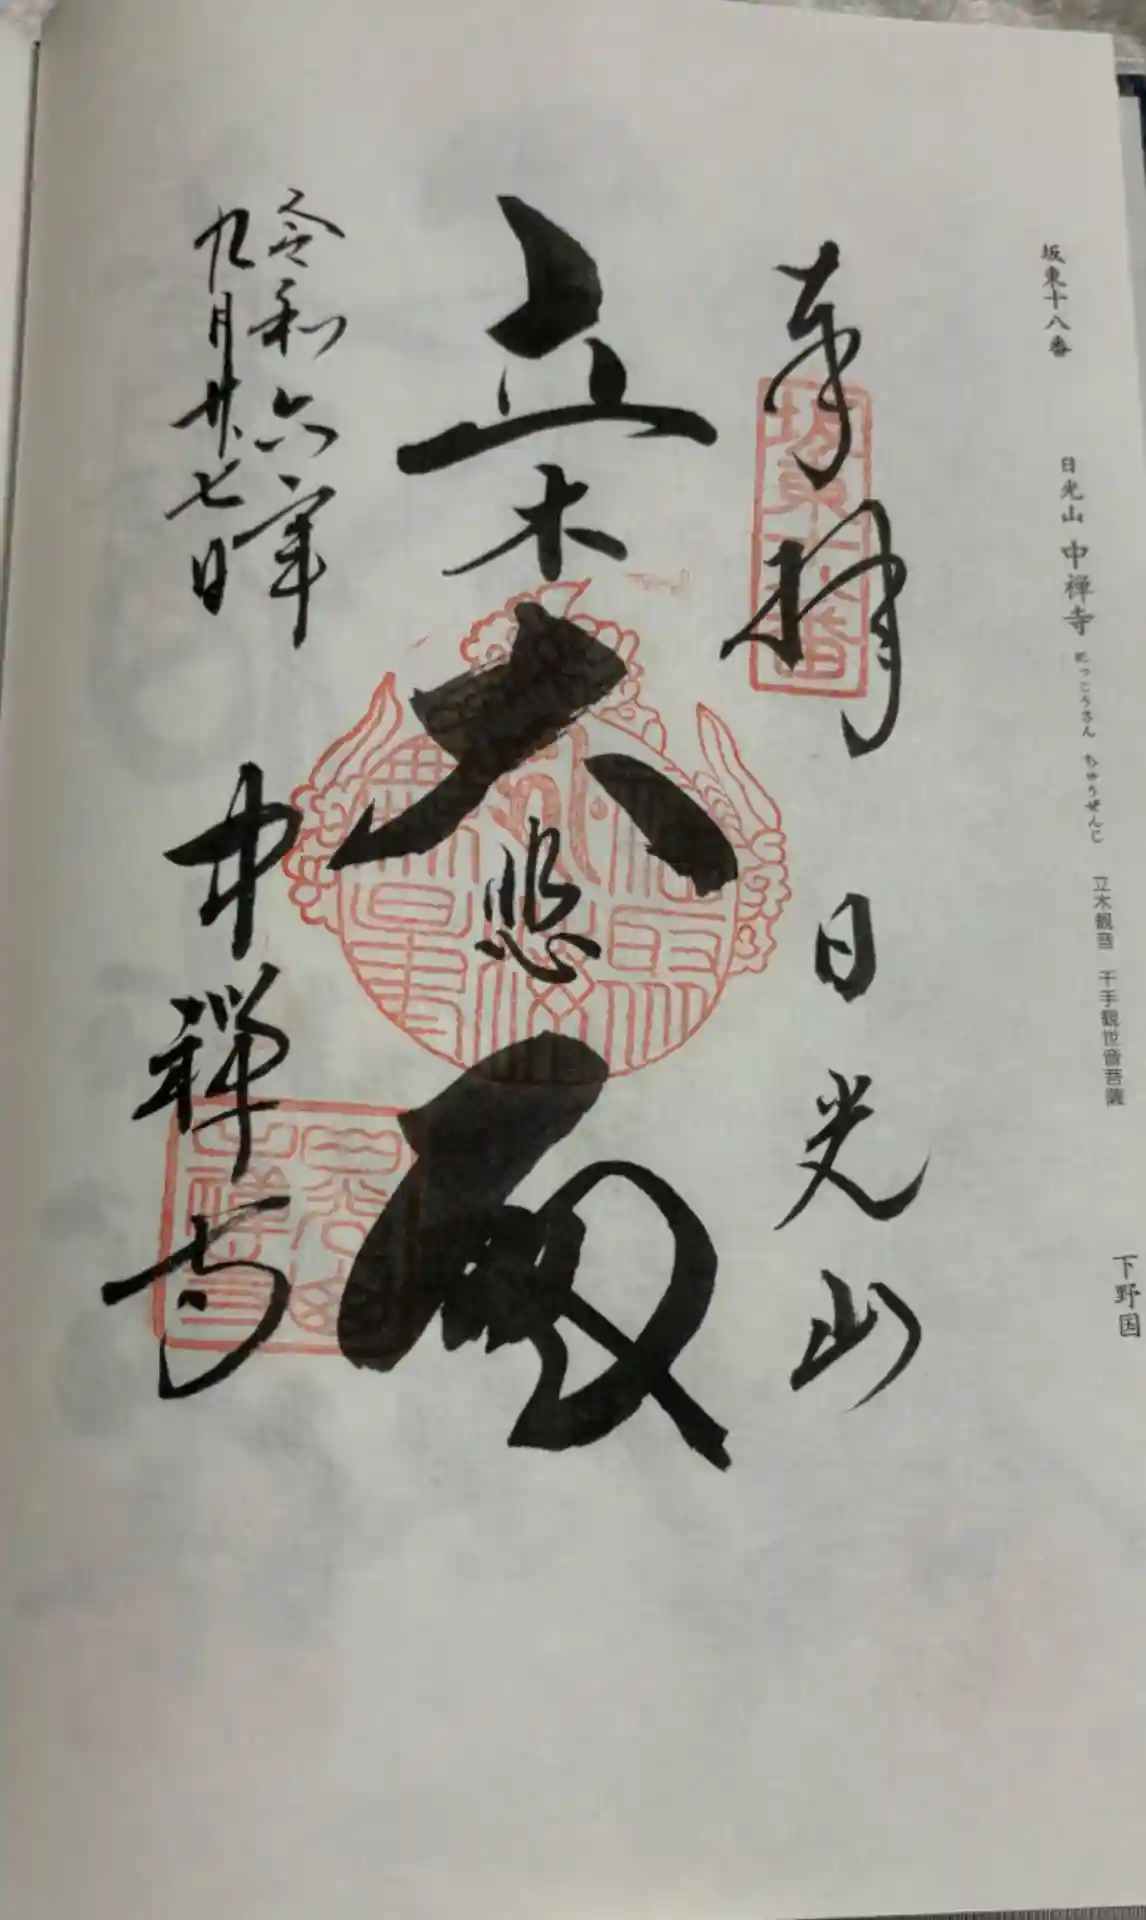 坂東十八番 日光山 中禅寺 にっこうさん ちゅうぜんじ 立木観音 千手観世音菩薩 下野国
奉拝 日光山
坂東十八番
立木大悲殿
令和六年
九月廿七日
中禅寺
日光山
中禅寺